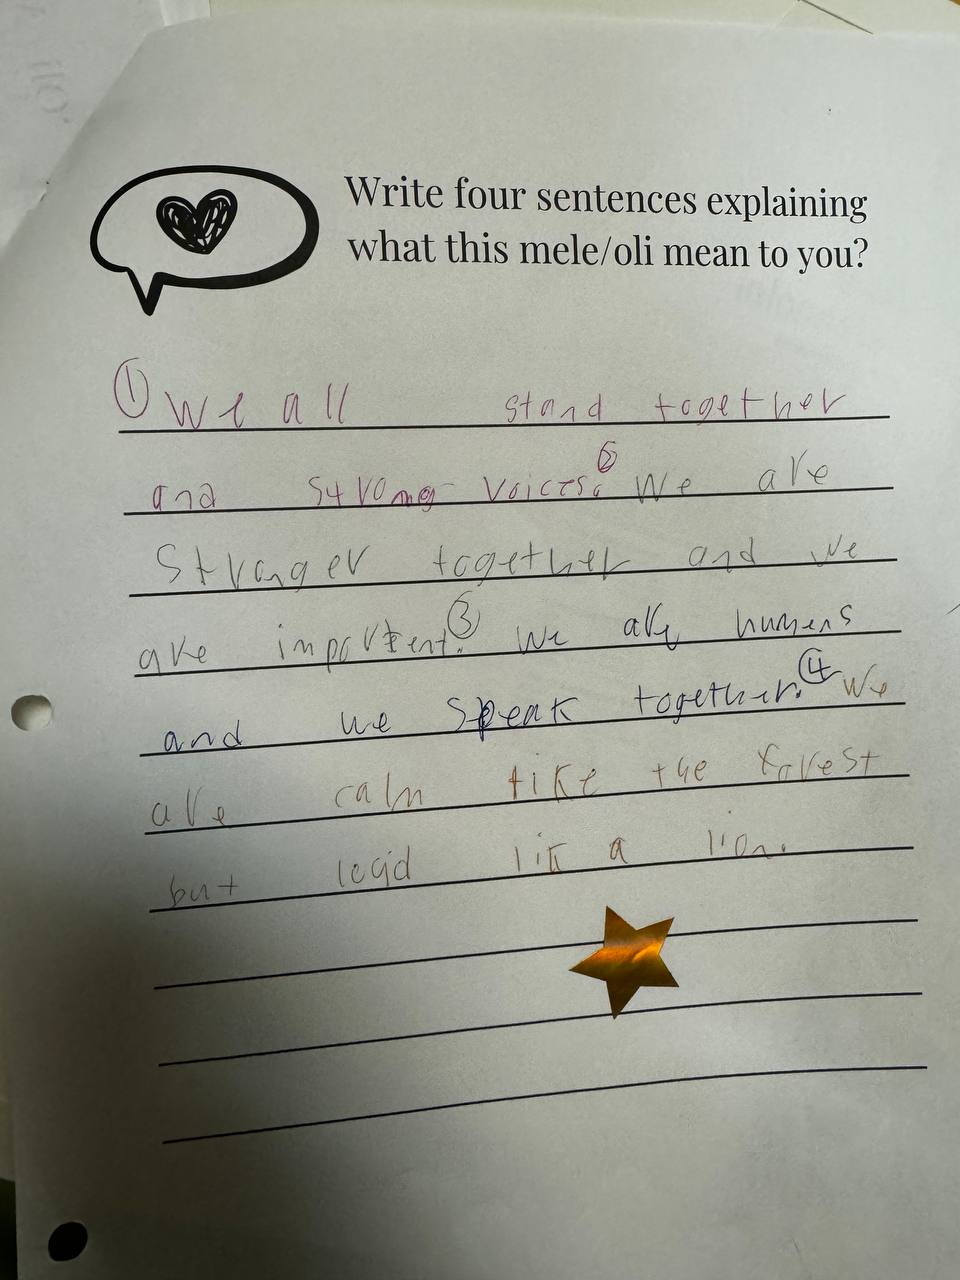 Write four sentences explaining
what this mele/oli mean to you?
① We all stand together
and strong voices. ② We are
Stronger together and we
are importent. ③ We are humens
and we speak together. ④ We
are calm like the forest
but loud lik a lion.